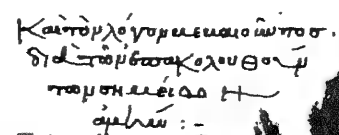 καὶ τὸν λόγον βεβαιοῦντος·
διὰ τῶν ἐπακολουθούν
των σημείων
ἀμήν :-